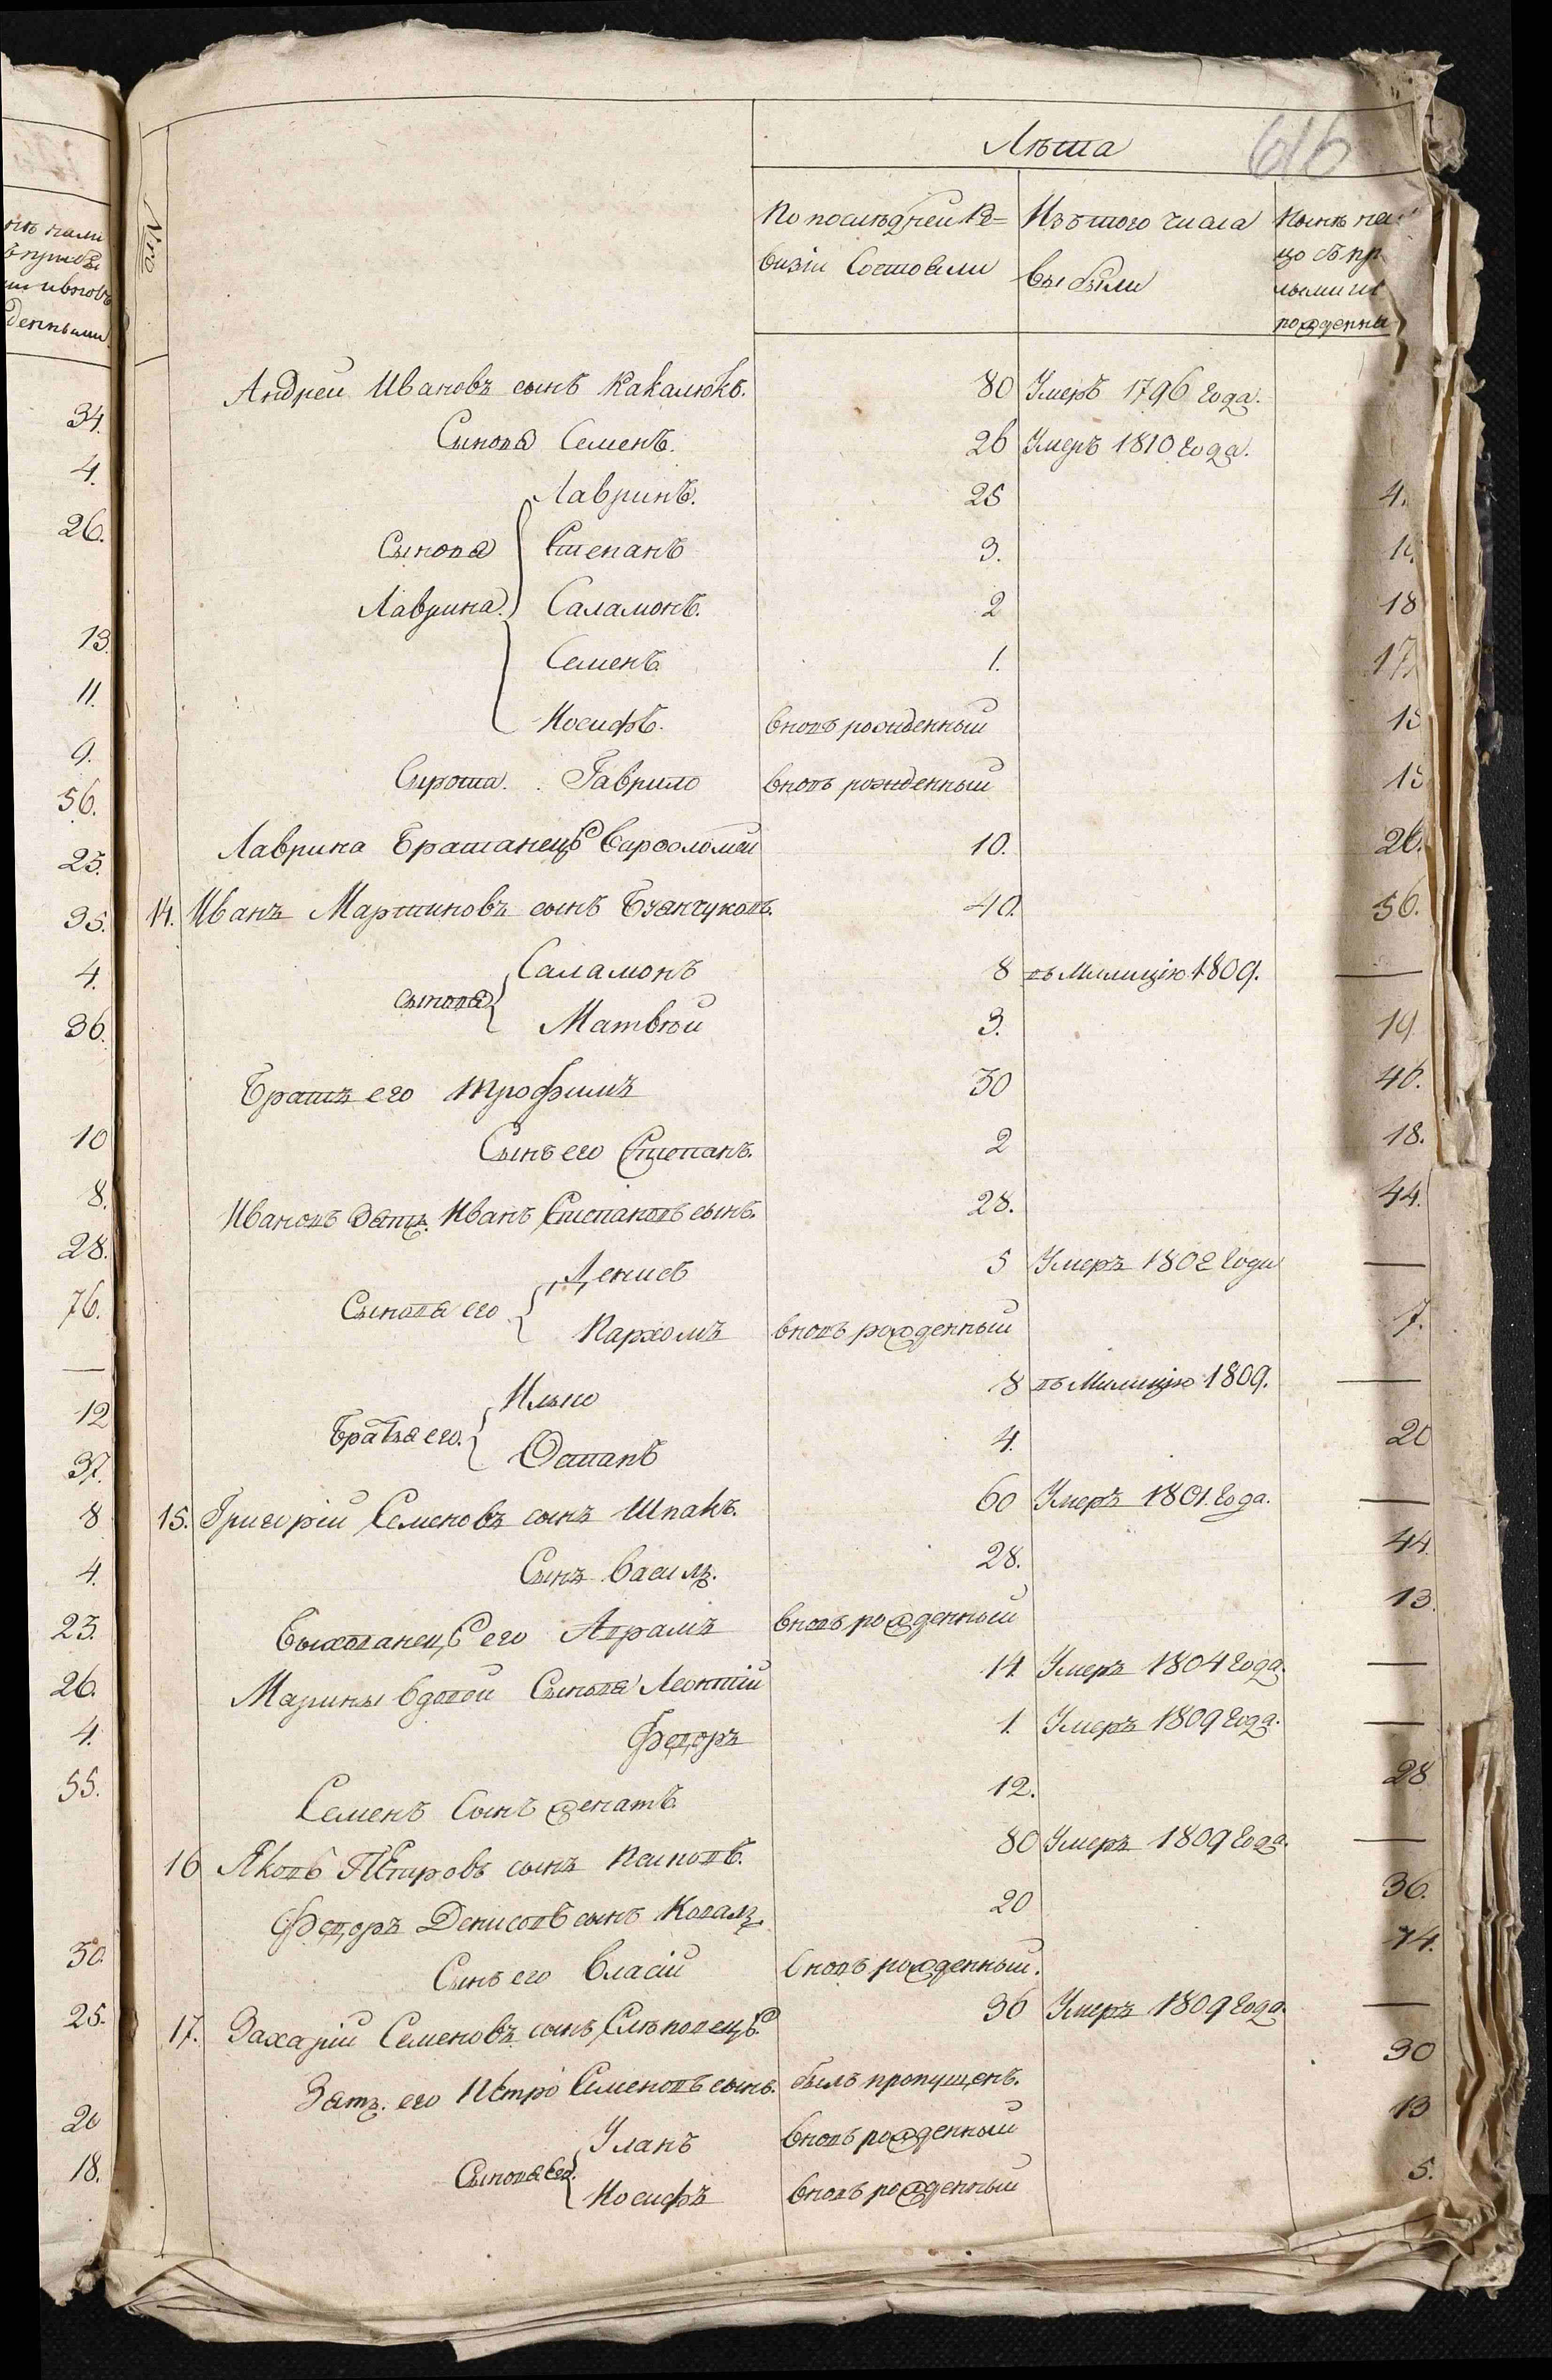 нѣ нали
616
Лѣта
Nro
По послѣдней Ре=
визіи Состояли
Изъ того числа
выбыли
Нынѣ на
цо съ пр
лыми и
рожденны
Андрей Ивановъ сынъ Какалюкъ. 80 Умеръ 1796 Года.
Сынова Семенъ. 26 Умеръ 1810 Года.
Лавринъ. 25 4.
Сынова Степанъ 3.
Лаврина Саламонъ. 2 18
Семенъ 1. 17.
Иосифъ. вновь рожденный
Сирота. Гаврило вновь рожденный
Лаврина Братанецъ Варфоломей 10. 26.
14. Иванъ Мартиновъ сынъ 40. 56.
Саламонъ 8 въ Милицію 1809. —
сынова
Матвѣй 3. 19.
Братъ его Трофимъ 30 46.
Сынъ его Степанъ. 2 18.
Ивановъ Зять. Иванъ Степановъ сынъ. 28. 44.
Денисъ 5 Умеръ 1802 Года —
Сынова его
Пархомъ вновь рожденный 7.
Илько 8 въ Милицію 1809. —
Братья его.
Остапъ 4. 20
15. Григорій Семеновъ сынъ Шпакъ. 60 Умеръ 1801. Года. —
Сынъ Василь. 28. 44.
Выхованецъ его Аврамъ вновь рожденный 13.
Марины вдовы Сынова Леонтій 14 Умеръ 1804 Года. —
Федоръ 1. Умеръ 1809 Года. —
Семенъ Сынъ женатъ. 12. 28
16 Яковъ Петровъ сынъ 80 Умеръ 1809 Года. —
Федоръ Денисовъ сынъ Коваль. 20 36.
Сынъ его Власій вновь рожденный. 14.
17. Захарій Семеновъ сынъ Слѣповецъ. 36 Умеръ 1809 Года —
Зять. его Петро Семеновъ сынъ. былъ пропущенъ. 30
Уланъ вновь рожденный 13
Сынова его
Иосифъ вновь рожденный 5.
34.
4.
26.
13.
11.
9.
56.
25.
35.
4.
36.
10
8.
28.
76.
—
12
37.
8
4.
23.
26.
4.
55.
30.
25.
20
18.